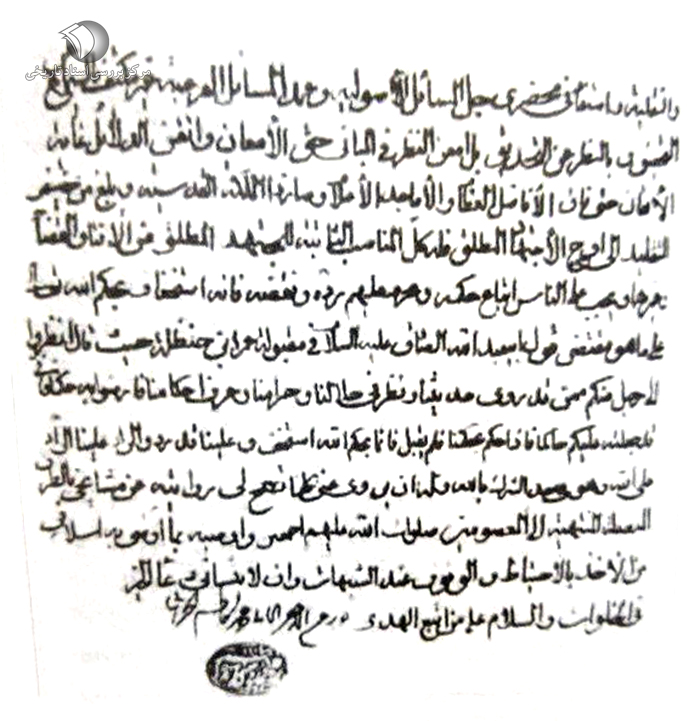 مرکز بررسی اسناد تاریخی
والنقلية واستفاد في محضري جل المسائل الأصولية وعمدة المسائل الفرعية
بالنظر عن التصديق بل امعن النظر في المباني حق الأمعان واتقن الدلائل غاية
الأتقان حتى فاق الأفاضل العظام والأماجد الأعلام وصار ذا الملكة القدسية وبلغ من حضيض
التقليد الى اوج الأجتهاد المطلق فله كل المناصب الثابتة للمجتهد المطلق من الأفتاء والقضاء
وغيرها ويجب على الناس اتباع حكمه وحرم عليهم رده ونقضه فانه استخفاف بحكم الله تعالى
على ما هو مقتضى قول ابي عبد الله الصادق عليه السلام في مقبولة عمر ابن حنظلة حيث قال انظروا
الى رجل منكم ممن قد روى حديثنا ونظر في حلالنا وحرامنا وعرف احكامنا فارضوا به حكما فاني
قد جعلته عليكم حاكما فاذا حكم بحكمنا فلم يقبل فانما بحكم الله استخف وعلينا قد رد والراد علينا الراد
على الله وهو حد الشرك بالله وله ان يروي عني كلما تصح لي روايته عن مشايخي بالطرق
المتصلة المنتهية الى المعصومين صلوات الله عليهم اجمعين واوصيه بما اوصوا به اسلافي
من الأخذ بالأحتياط والوقوف عند الشبهات وان لا ينساني غالبا
في الخلوات والسلام على من اتبع الهدى